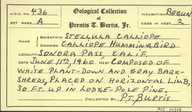 No. 436 Oological Collection BEGUN
Set Mark A of 2
Prentis T. Burtis, Jr.
STELLULA CALLIOPE
CALLIOPE HUMMINGBIRD
SONORA PASS, CALIF.
JUNE 11TH, 1960 COMPOSED OF
WHITE PLANT-DOWN AND GRAY BARK-
SHREDS, PLACED ON HORIZONTAL LIMB,
30 FT. UP IN LODGE-POLE PINE.
P.T. BURTIS